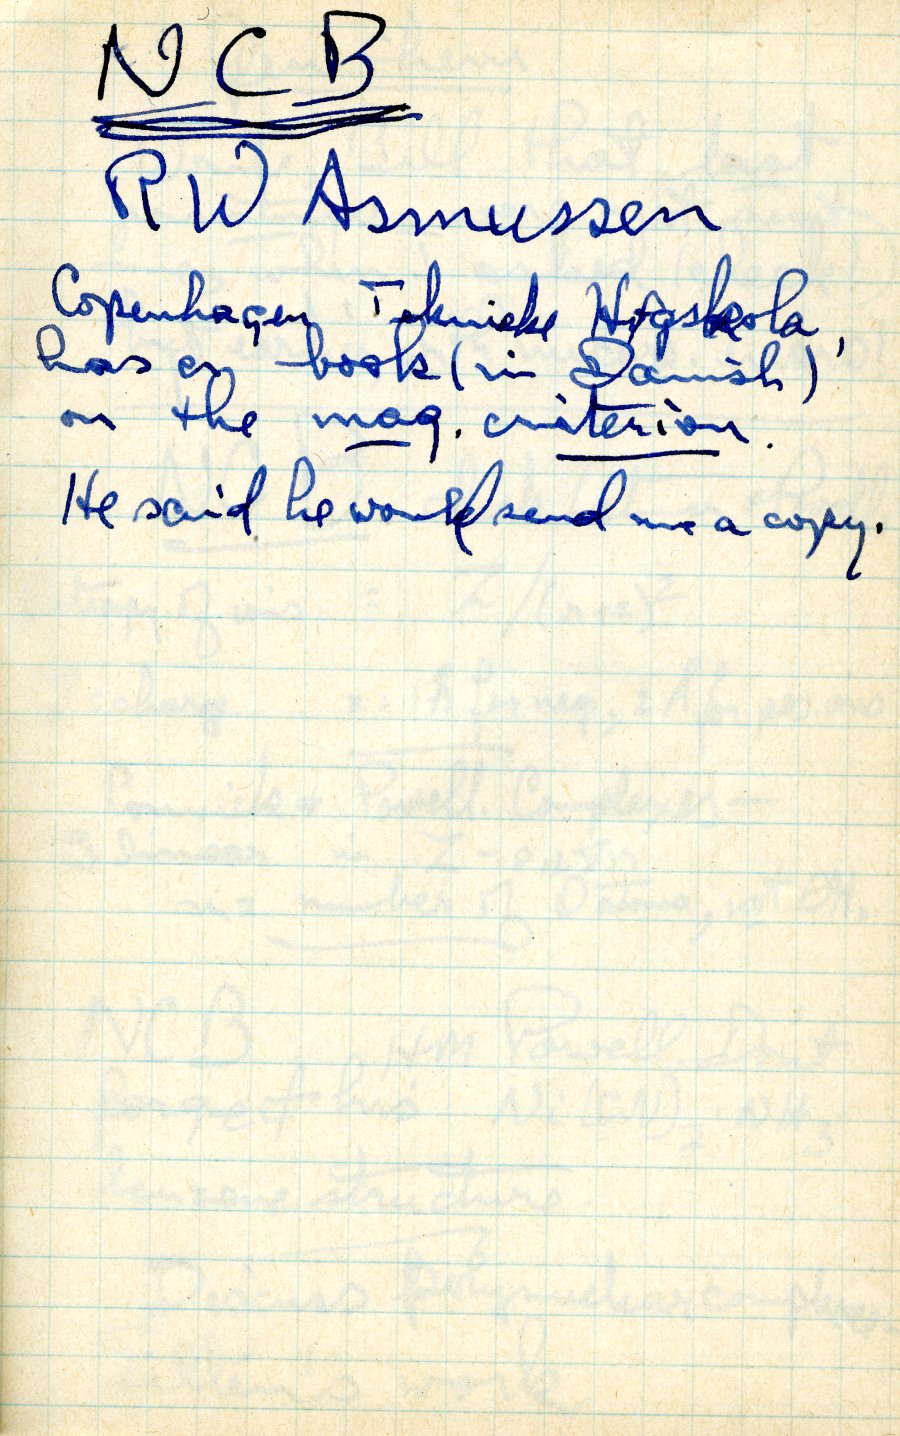 NCB
RW Asmussen
Copenhagen Tekniske Høgskola,
has a book (in Danish)
on the mag. criterion.
He said he would send me a copy.